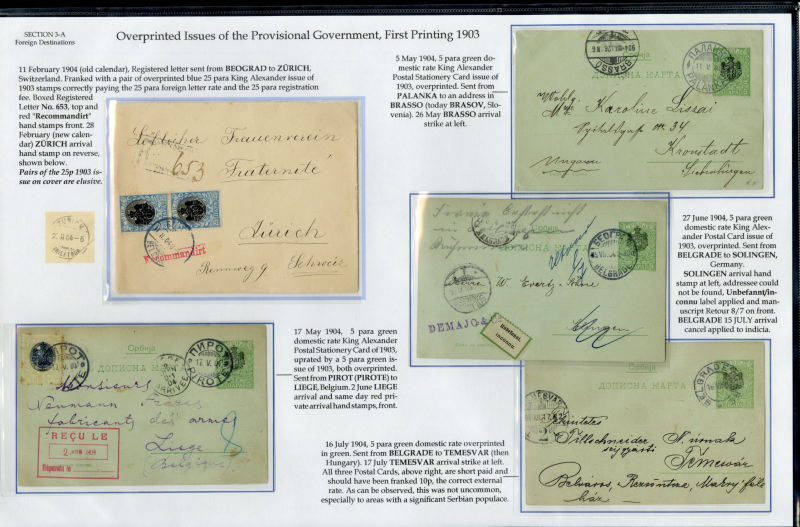 SECTION 5-A
Foreign Destinations
Overprinted Issues of the Provisional Government, First Printing 1903
11 February 1904 (old calendar), Registered letter sent from BEOGRAD to ZÜRICH,
Switzerland. Franked with a pair of overprinted blue 25 para King Alexander issue of
1903 stamps correctly paying the 25 para foreign letter rate and the 25 para registration
fee. Boxed Registered
Letter No. 653, top and
red "Recommandirt"
hand stamps front. 28
February (new calen-
dar) ZÜRICH arrival
hand stamp on reverse,
shown below.
Pairs of the 25p 1903 is-
sue on cover are elusive.
Frauenverein
653
Fraternité
Zürich
Recommandirt
Rennweg 9
Schweiz
5 May 1904, 5 para green do-
mestic rate King Alexander
Postal Stationery Card issue of
1903, overprinted. Sent from
PALANKA to an address in
BRASSO (today BRASOV, Slo-
venia). 26 May BRASSO arrival
strike at left.
BRASSO
Србија
ДОПИСНА КАРТА
PALANKA
Karoline Lissai
Kronstadt
Ungarn
Siebenbürgen
27 June 1904, 5 para green
domestic rate King Alex-
ander Postal Card issue of
1903, overprinted. Sent from
BELGRADE to SOLINGEN,
Germany.
SOLINGEN arrival hand
stamp at left, addressee could
not be found, Unbefannt/in-
connu label applied and man-
uscript Retour 8/7 on front.
BELGRADE 15 JULY arrival
cancel applied to indicia.
Србија
ДОПИСНА КАРТА
BELGRADE
DEMAJO &
inconnu.
17 May 1904, 5 para green
domestic rate King Alexander
Postal Stationery Card of 1903,
uprated by a 5 para green is-
sue of 1903, both overprinted.
Sent from PIROT (PIROTE) to
LIEGE, Belgium. 2 June LIEGE
arrival and same day red pri-
vate arrival hand stamps, front.
Србија
ДОПИСНА КАРТА
ПИРОТ
PIROTE
Monsieurs
Neumann Frères
fabricants des armes
Liège
(Belgique)
REÇU LE
2 JUIN 1904
Répondu le
16 July 1904, 5 para green domestic rate overprinted
in green. Sent from BELGRADE to TEMESVAR (then
Hungary). 17 July TEMESVAR arrival strike at left.
All three Postal Cards, above right, are short paid and
should have been franked 10p, the correct external
rate. As can be observed, this was not uncommon,
especially to areas with a significant Serbian populace.
TEMESVAR
Србија
ДОПИСНА КАРТА
BELGRADE
Temesvár
Belváros,